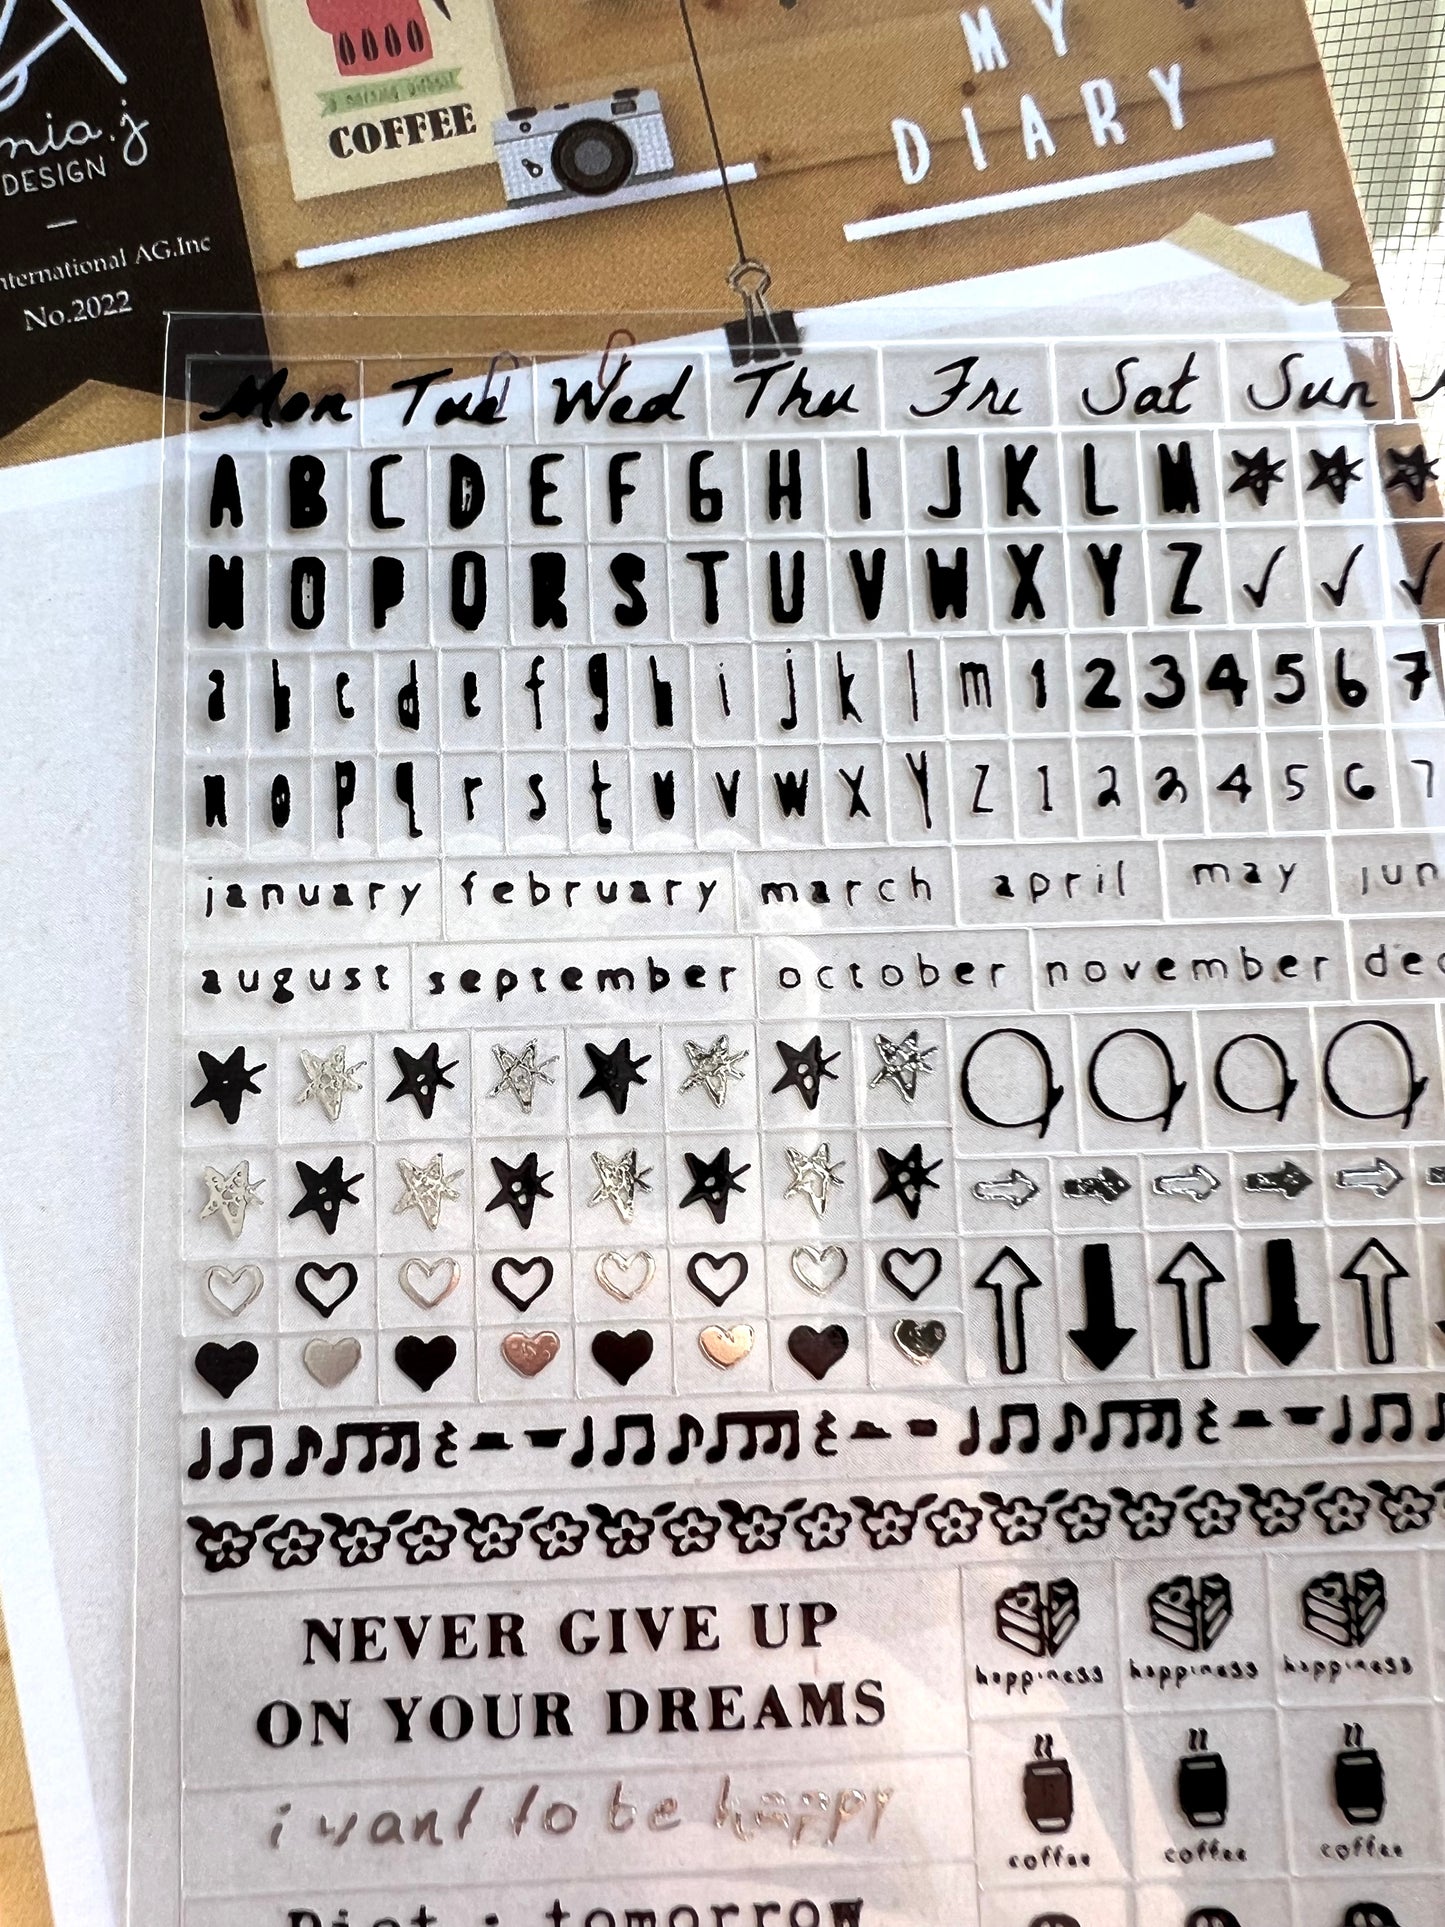 MY
DIARY
COFFEE
nia.j
DESIGN
International AG.Inc
No.2022
Mon Tue Wed Thu Fri Sat Sun
A B C D E F G H I J K L M
N O P Q R S T U V W X Y Z
a b c d e f g h i j k l m 1 2 3 4 5 6 7
n o p q r s t u v w x y z 1 2 3 4 5 6 7
january february march april may jun
august september october november dec
NEVER GIVE UP
ON YOUR DREAMS
happiness happiness happiness
i want to be happy
coffee coffee coffee
Diet : tomorrow